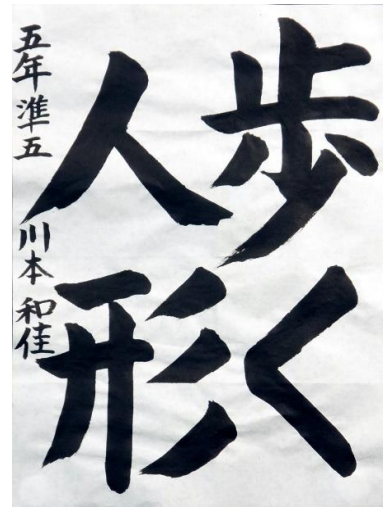 歩く
人形
五年 準五 川本 和佳